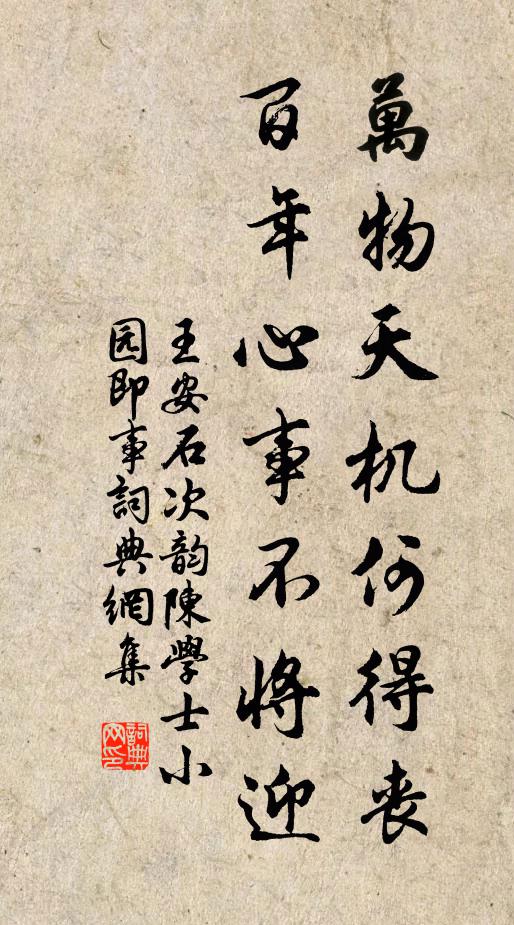 萬物天机何得喪
百年心事不將迎
王安石次韵陳學士小
园即事詞典網集
詞典网印